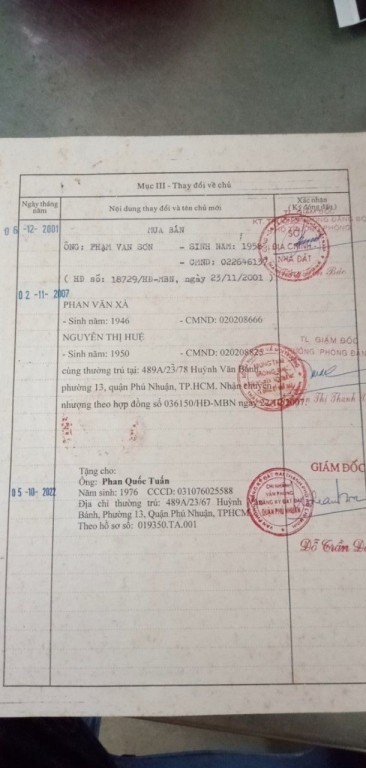 Mục III - Thay đổi về chủ
Ngày tháng năm
Nội dung thay đổi và tên chủ mới
Xác nhận (Ký đóng dấu)
06-12-2001
MUA BÁN
ÔNG: PHẠM VAN SƠN - SINH NAM: 1956
- CMND:
( HĐ số: 18729/HĐ-MBN, ngày 23/11/2001 )
SỞ
ĐỊA CHÍNH
NHÀ ĐẤT
02-11-2007
PHAN VĂN XÀ
- Sinh năm: 1946 - CMND: 020208666
NGUYỄN THỊ HUỆ
- Sinh năm: 1950 - CMND:
cùng thường trú tại: 489A/23/78 Huỳnh Văn Bánh,
phường 13, quận Phú Nhuận, TP.HCM. Nhận chuyển
nhượng theo hợp đồng số 036150/HĐ-MBN ngày
TL. GIÁM ĐỐC
Tặng cho:
Ông: Phan Quốc Tuấn
05-10-2022
Năm sinh: 1976 CCCD: 031076025588
Địa chỉ thường trú: 489A/23/67 Huỳnh
Bánh, Phường 13, Quận Phú Nhuận, TPHCM
Theo hồ sơ số: 019350.TA.001
GIÁM ĐỐC
CHI NHÁNH
VĂN PHÒNG
ĐĂNG KÝ ĐẤT ĐAI
QUẬN PHÚ NHUẬN